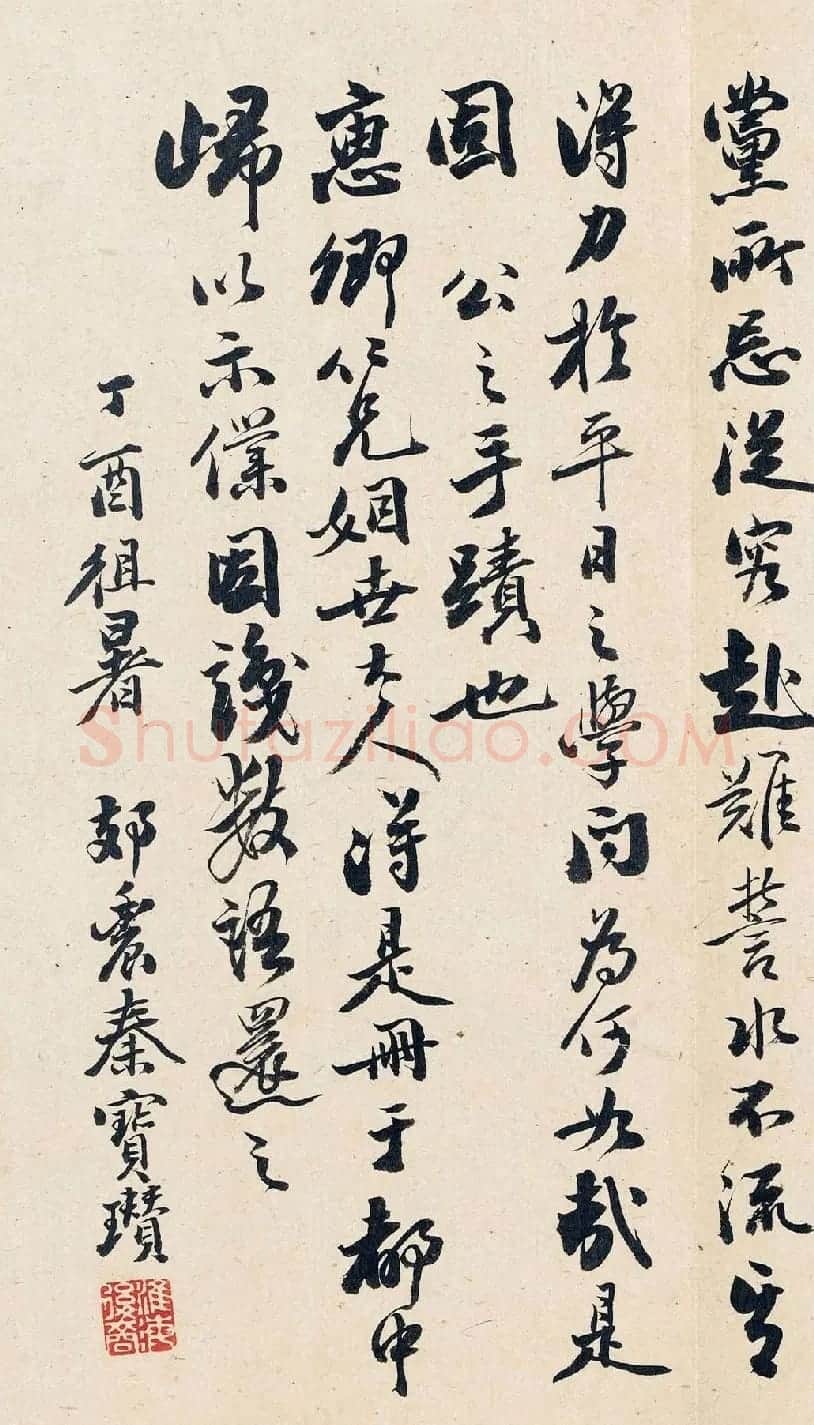 黨所忌從容赴難誓水不流其
得力於平日之學問為何如哉是
固公之手蹟也
惠卿仁兄姻世大人得是冊于都中
歸以示僕因識數語還之
丁酉徂暑 郊農秦寶瓚
Shufaziliao.COM